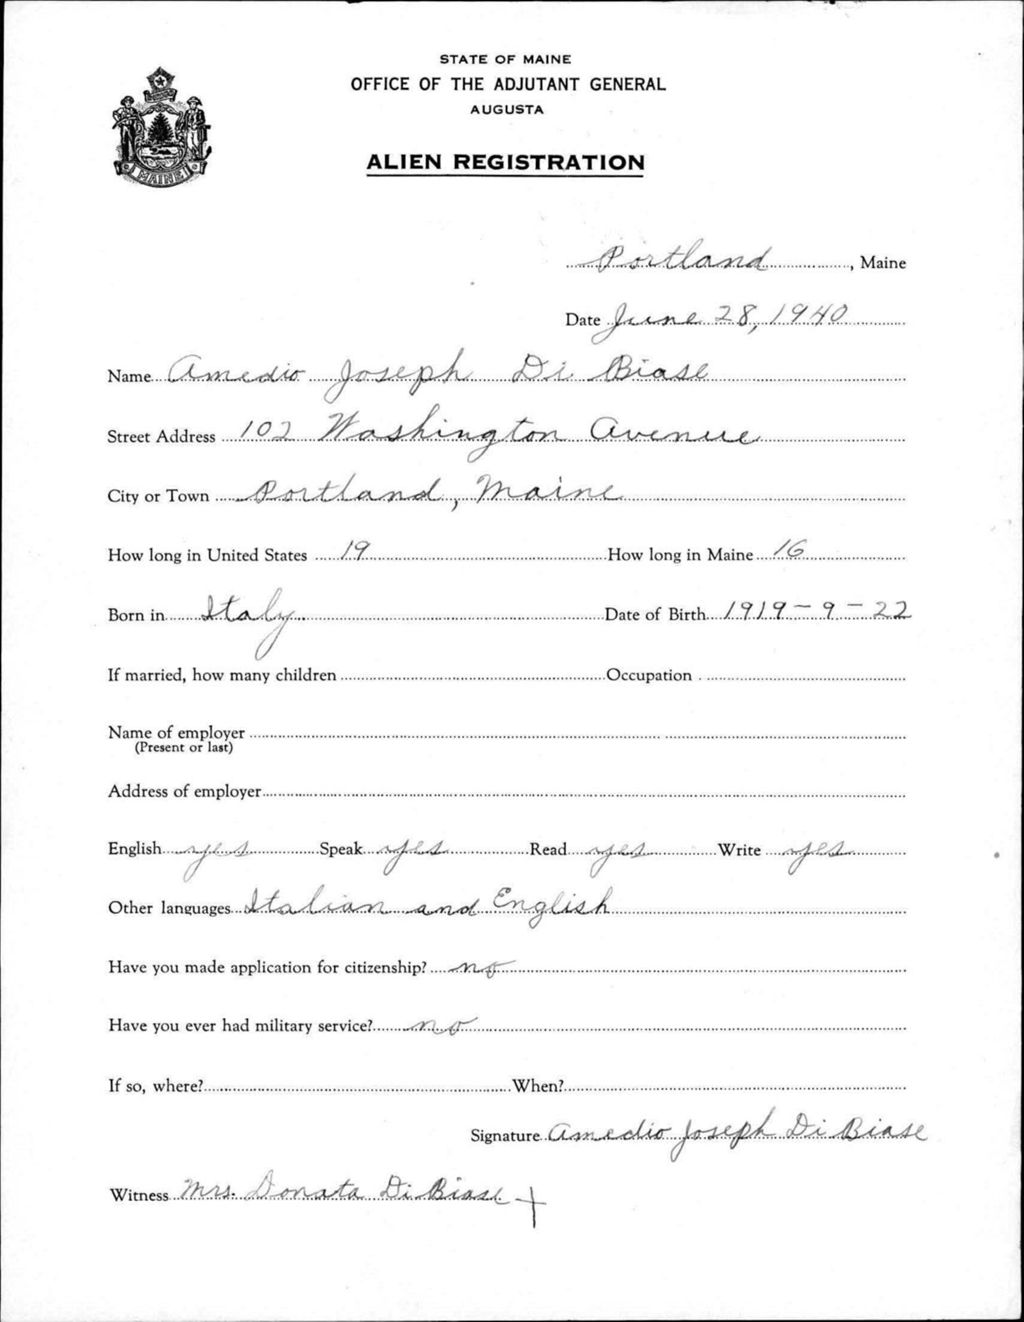 STATE OF MAINE
OFFICE OF THE ADJUTANT GENERAL
AUGUSTA
ALIEN REGISTRATION
MAINE
Portland, Maine
Date June 28, 1940
Name Amedio Joseph Di Biase
Street Address 102 Washington Avenue
City or Town Portland, Maine
How long in United States 19 How long in Maine 16
Born in Italy Date of Birth 1919-9-22
If married, how many children Occupation
Name of employer
(Present or last)
Address of employer
English yes Speak yes Read yes Write yes
Other languages Italian and English
Have you made application for citizenship? no
Have you ever had military service? no
If so, where? When?
Signature Amedio Joseph Di Biase
Witness Mrs. Donata Di Biase